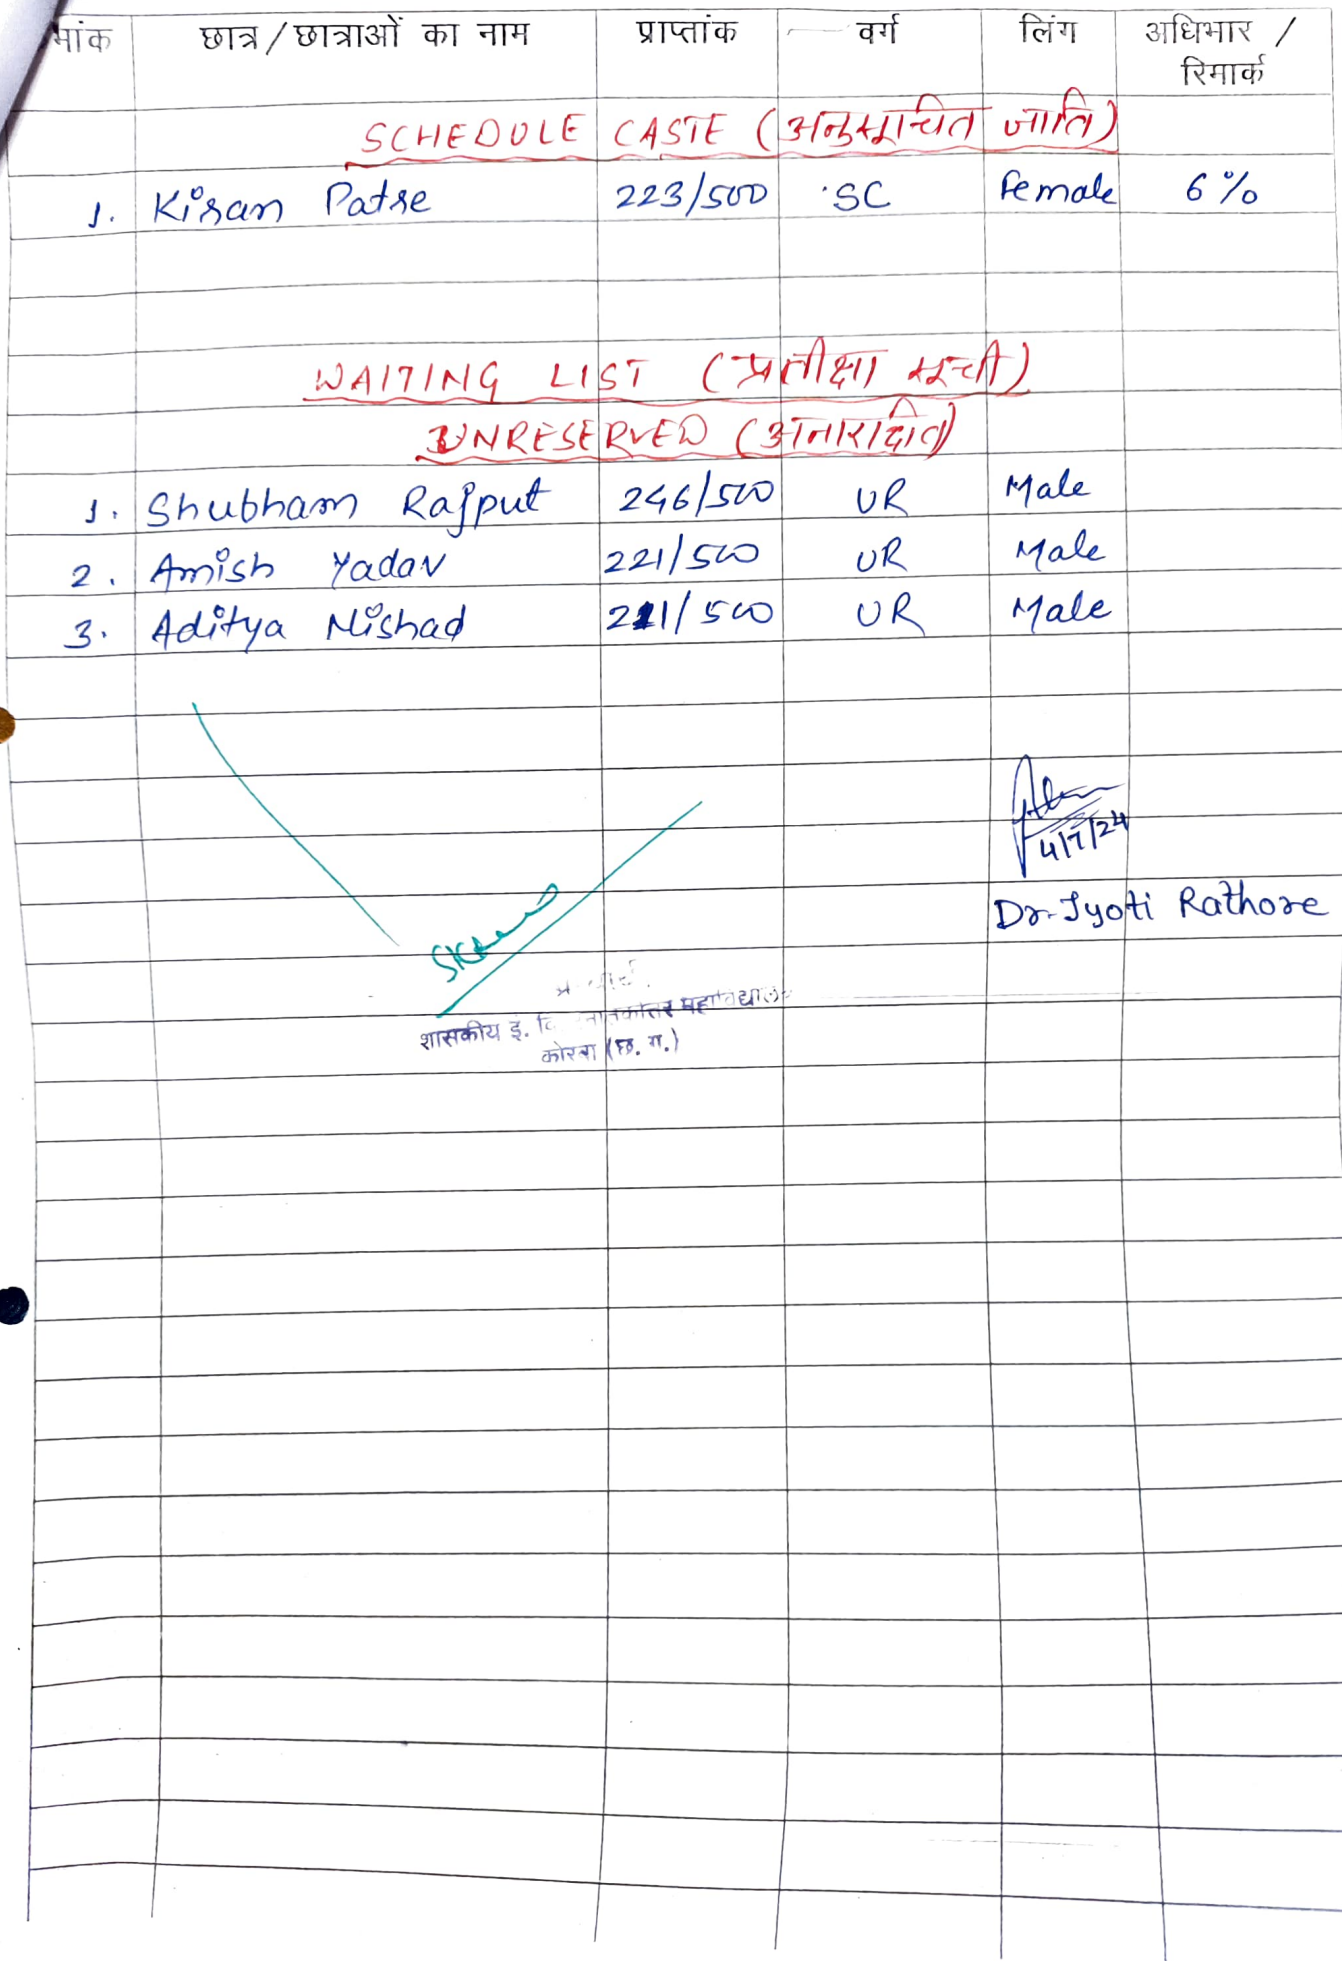 मांक छात्र / छात्राओं का नाम प्राप्तांक वर्ग लिंग अधिभार /
रिमार्क
SCHEDULE CASTE (अनुसूचित जाति)
1. Kiran Patre 223/500 SC Female 6%
WAITING LIST (प्रतीक्षा सूची)
UNRESERVED (अनारक्षित)
1. Shubham Rajput 246/500 UR Male
2. Amish Yadav 221/500 UR Male
3. Aditya Nishad 211/500 UR Male
4/7/24
Dr. Jyoti Rathore
शासकीय इ. वि महाविद्यालय
कोरबा (छ. ग.)